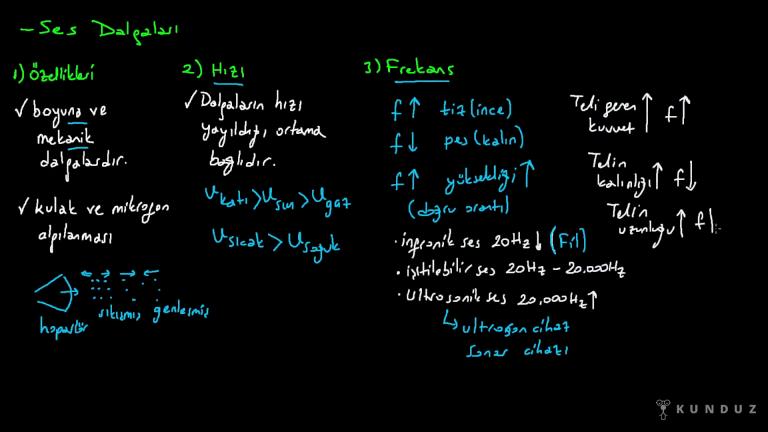 - Ses Dalgaları
1) Özellikleri
✓ boyuna ve
mekanik
dalgalardır.
✓ kulak ve mikrofon
algılanması
hoparlör
sıkışmış genleşmiş
2) Hızı
✓ Dalgaların hızı
yayıldığı ortama
bağlıdır.
υkatı > υsıvı > υgaz
υsıcak > υsoğuk
3) Frekans
f ↑ tiz (ince)
f ↓ pes (kalın)
f ↑ yüksekliği ↑
(doğru orantı)
· infronik ses 20Hz ↓ (Fil)
· işitilebilir ses 20Hz - 20.000Hz
· Ultrosonik ses 20.000Hz ↑
↳ ultrason cihaz
sonar cihazı
Teli geren ↑ f ↑
kuvvet
Telin
kalınlığı ↑ f ↓
Telin
uzunluğu ↑ f
KUNDUZ